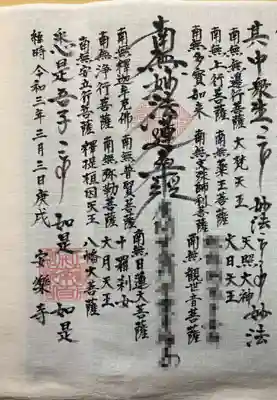 其中衆生 妙法 妙法
南無無邊行菩薩 大梵天王 天照大神
南無上行菩薩 南無薬王菩薩 大日天王
南無多寶如来 南無文殊師利菩薩
南無觀世音菩薩
南無妙法蓮華經
南無日蓮大菩薩
南無釋迦牟尼佛 南無普賢菩薩 十羅刹女
南無浄行菩薩 南無弥勒菩薩 大月天王
南無安立行菩薩 釋提桓因天王 八幡大菩薩
悉是吾子 如是 如是
維時令和三年三月三日庚戌 安樂寺